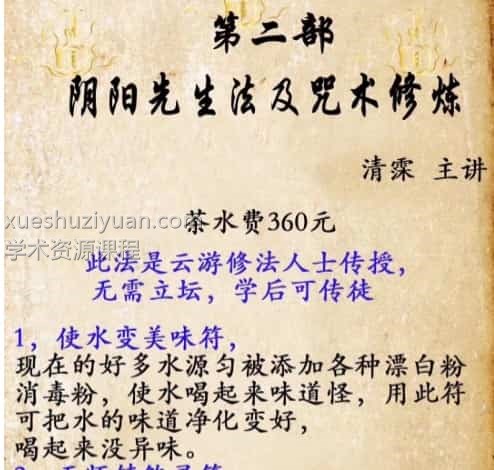 第二部
阴阳先生法及咒术修炼
清霂 主讲
xueshuziyuan.com
茶水费360元
学术资源课程
此法是云游修法人士传授，
无需立坛，学后可传徒
1，使水变美味符，
现在的好多水源匀被添加各种漂白粉
消毒粉，使水喝起来味道怪，用此符
可把水的味道净化变好，
喝起来没异味。